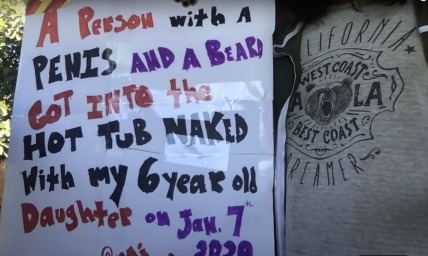 A PERSON with A
PENIS AND A BEARD
GOT INTO the
HOT TUB NAKED
With my 6 year old
Daughter on Jan. 7th
2020
CALIFORNIA
WEST COAST
LA
BEST COAST
DREAMER